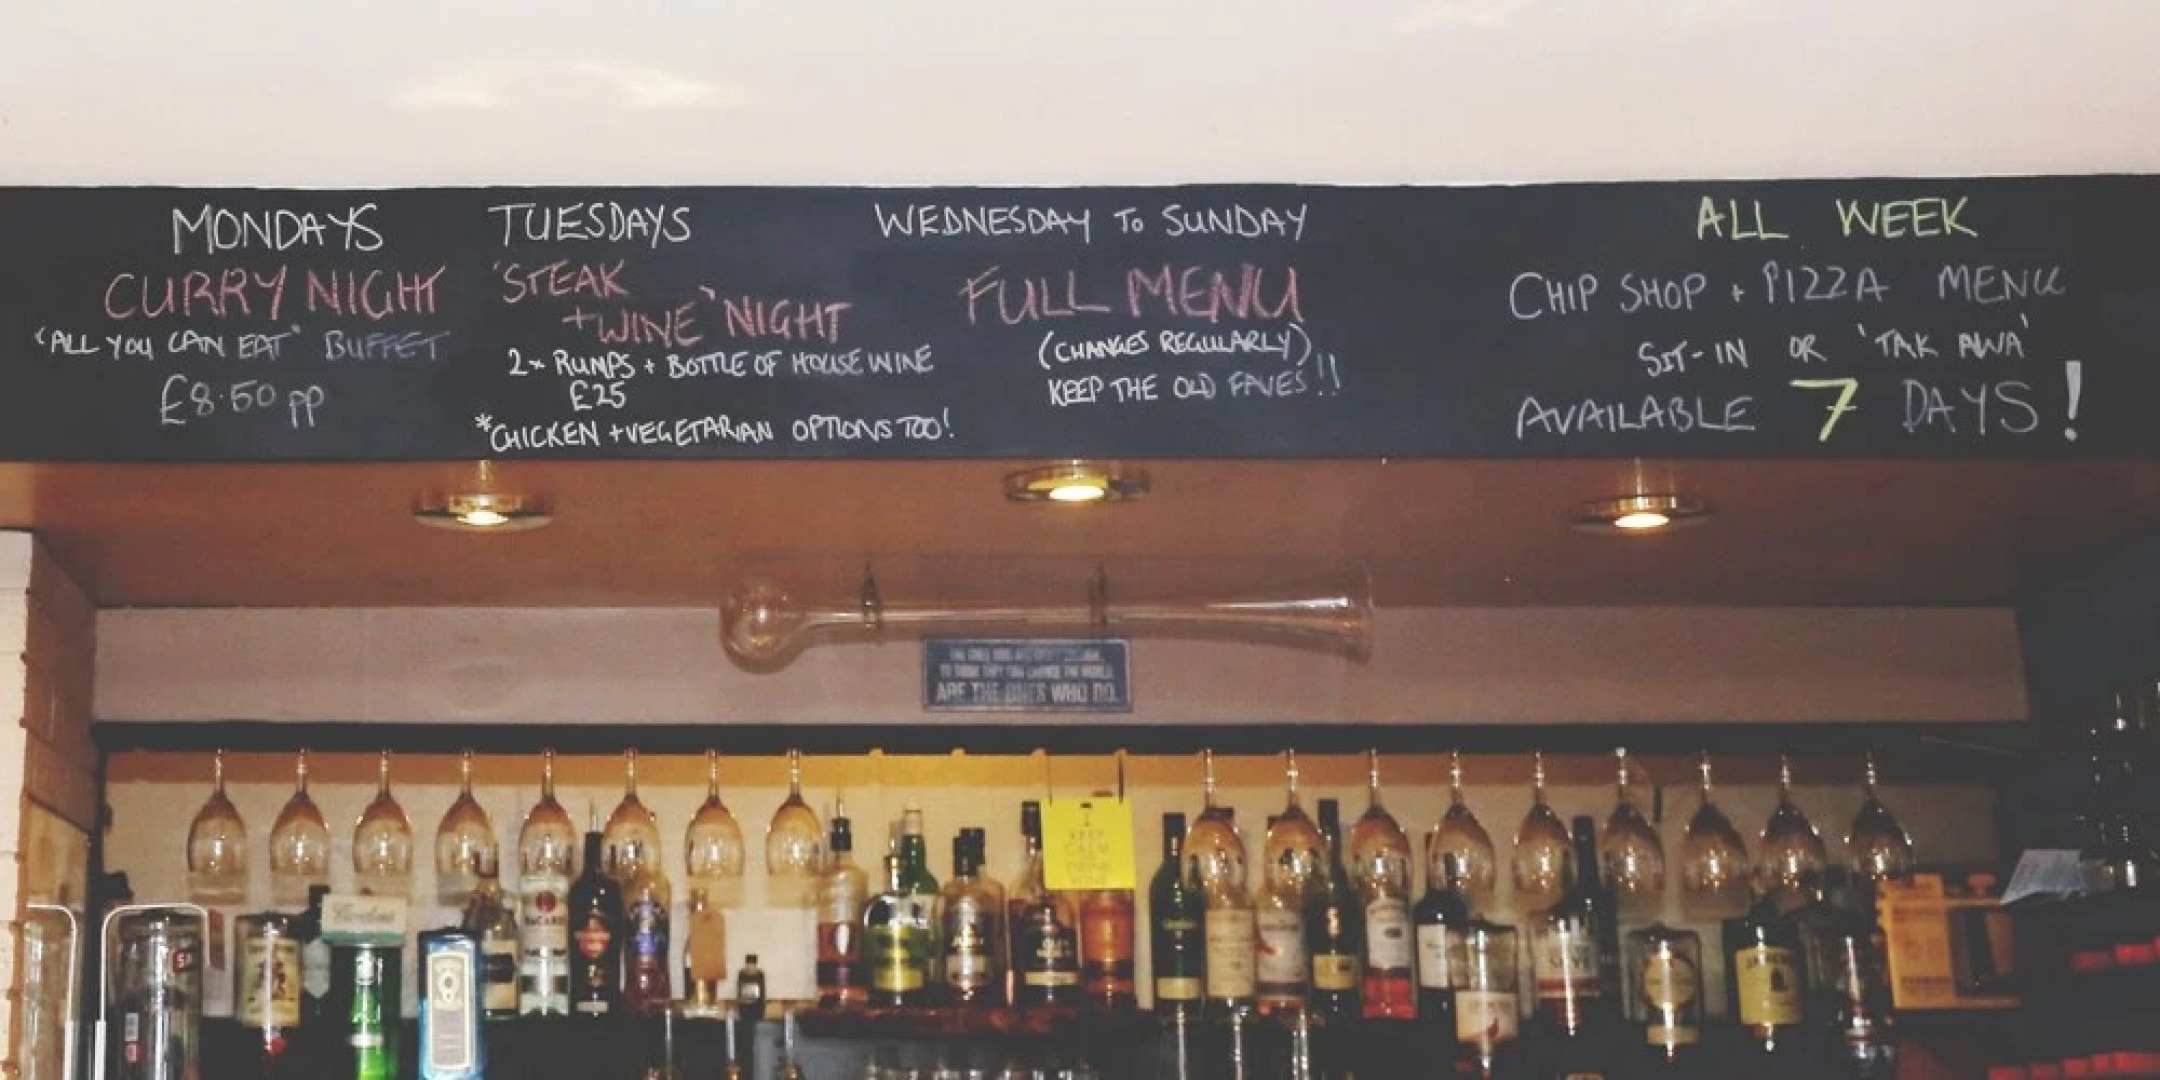 MONDAYS
CURRY NIGHT
"ALL YOU CAN EAT" BUFFET
£8.50 pp
TUESDAYS
'STEAK
+WINE' NIGHT
2x RUMPS + BOTTLE OF HOUSE WINE
£25
*CHICKEN + VEGETARIAN OPTIONS TOO!
WEDNESDAY To SUNDAY
FULL MENU
(CHANGES REGULARLY)
KEEP THE OLD FAVES!!
ALL WEEK
CHIP SHOP + PIZZA MENU
SIT-IN OR 'TAK AWA'
AVAILABLE 7 DAYS!
TO THINK THEY CAN CHANGE THE WORLD
ARE THE ONES WHO DO.
KEEP
CALM
DRINK
WINE
Gordon's
BACARDI